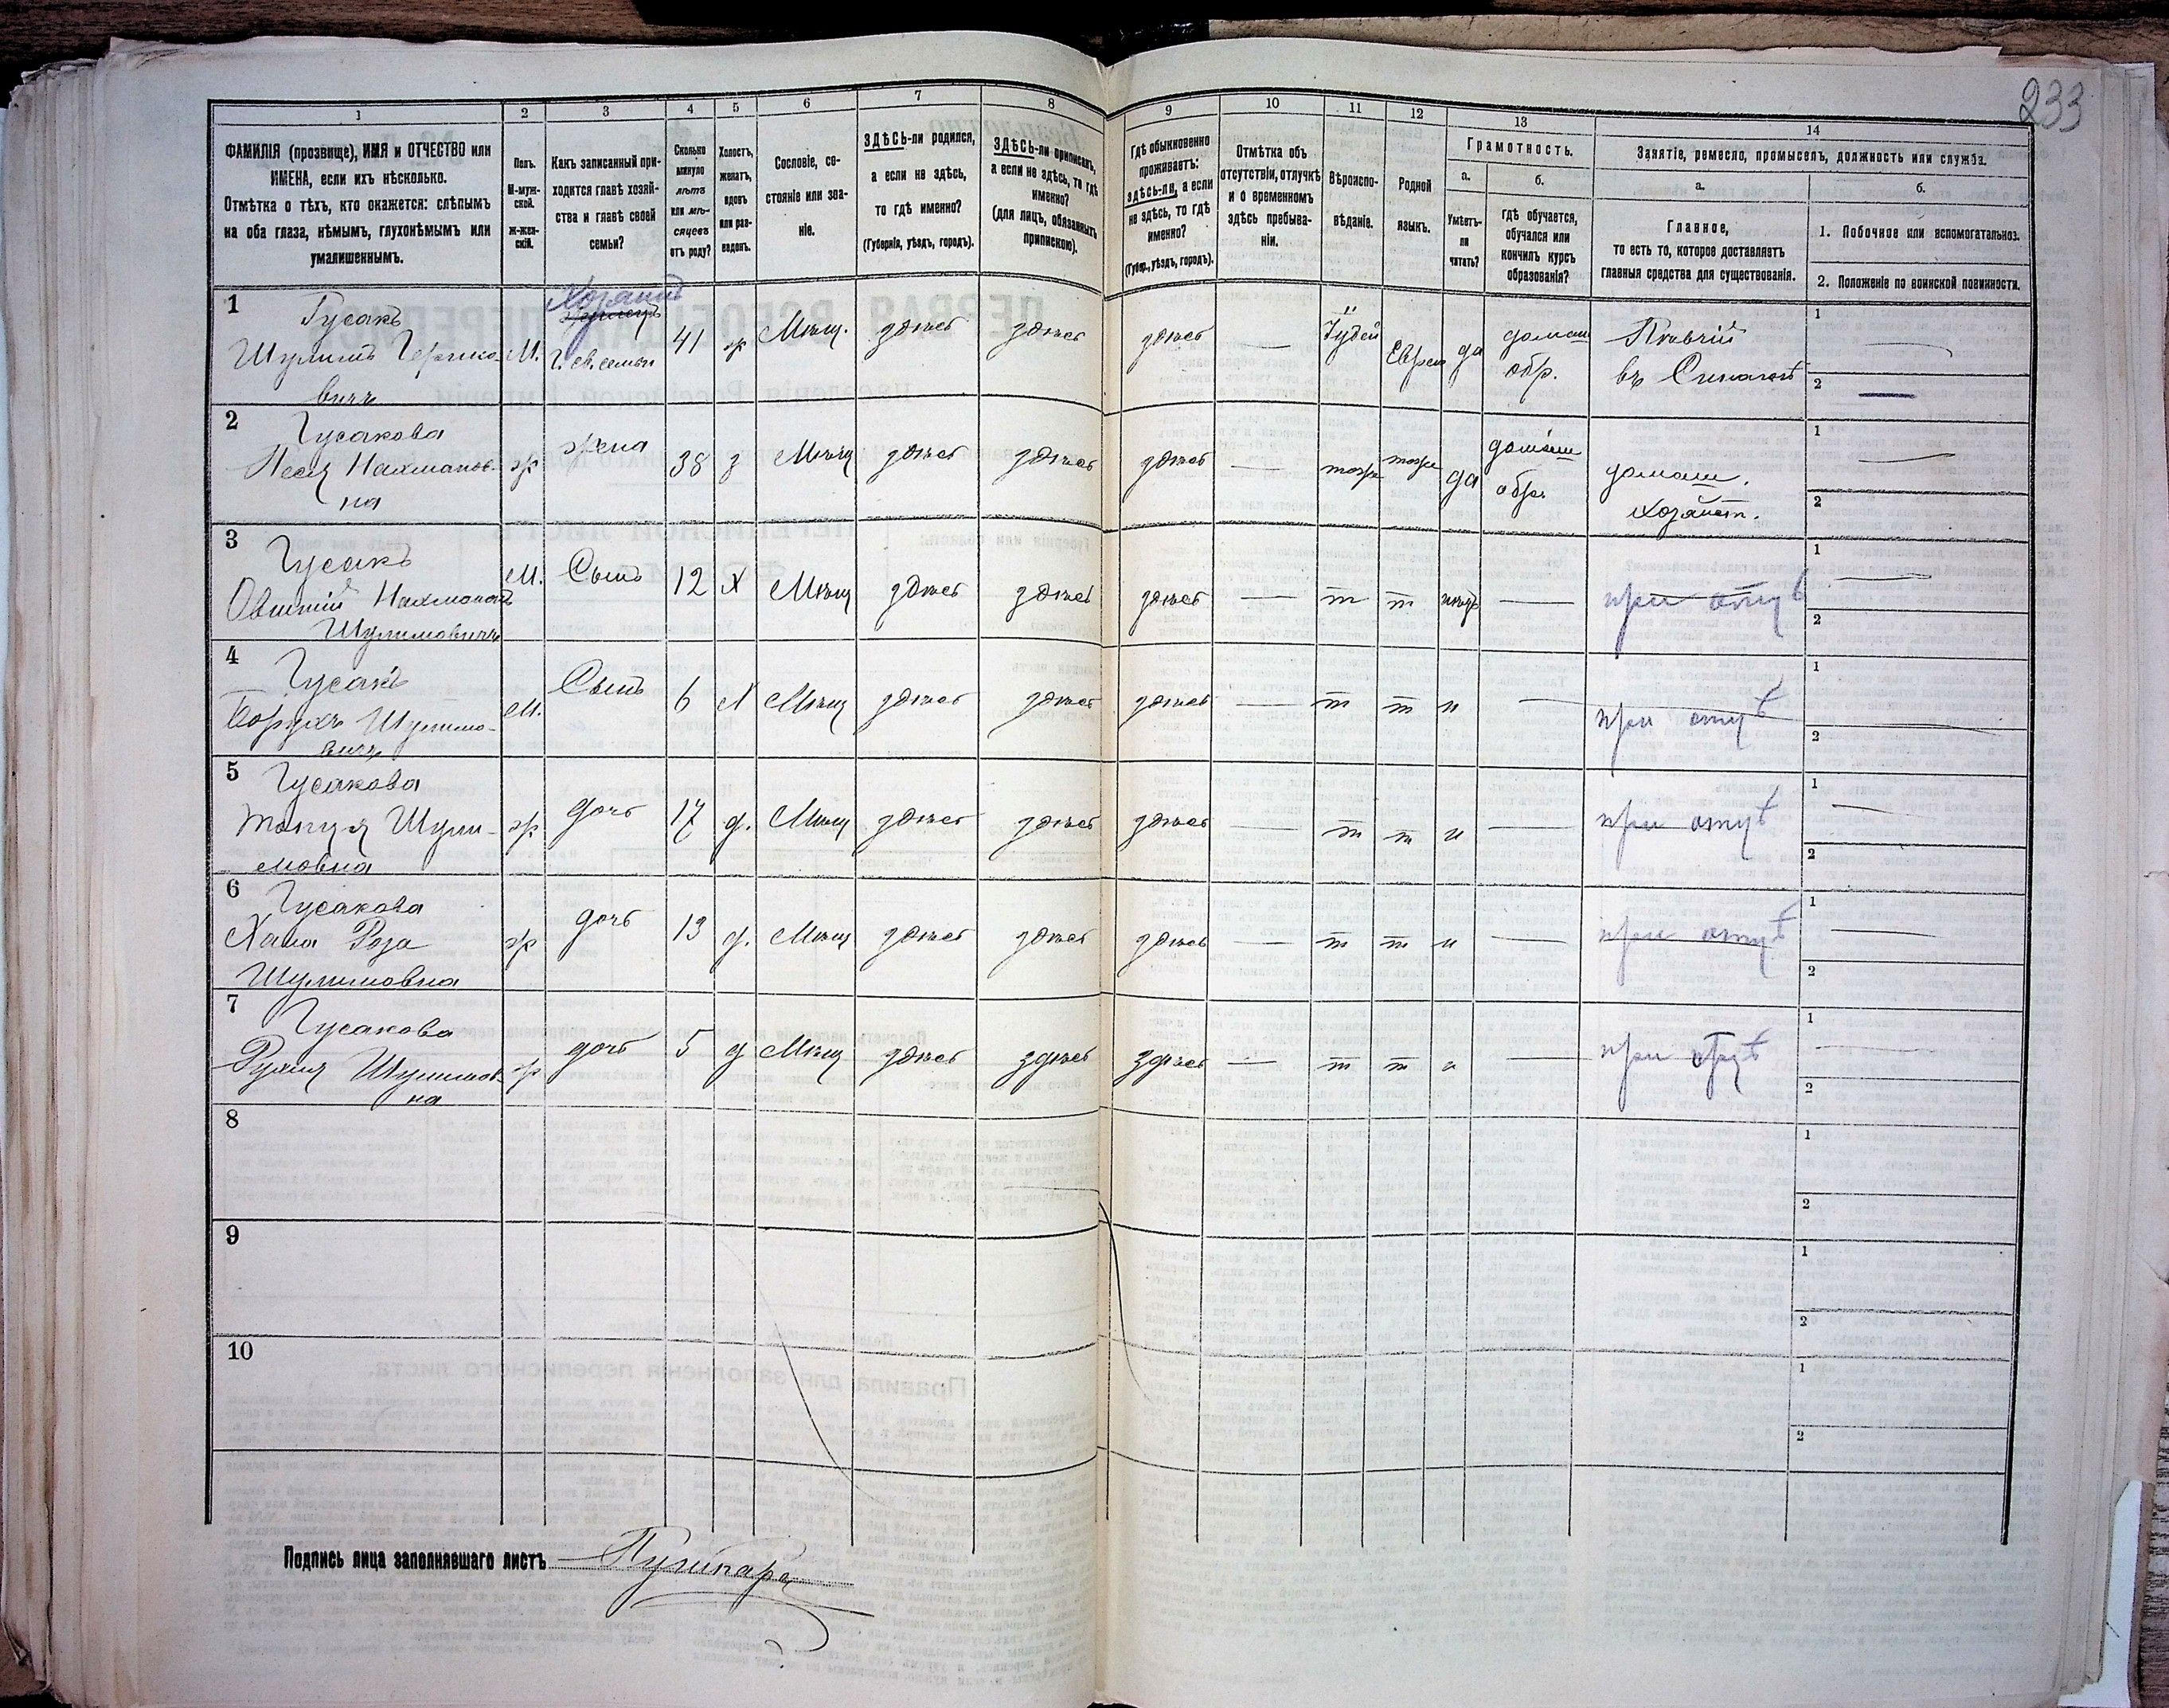 233
1
2
3
4
5
6
7
8
9
10
11
12
13
14
ФАМИЛІЯ (прозвище), ИМЯ и ОТЧЕСТВО или
ИМЕНА, если ихъ нѣсколько.
Отмѣтка о тѣхъ, кто окажется: слѣпымъ
на оба глаза, нѣмымъ, глухонѣмымъ или
умалишеннымъ.
Полъ.
М-муж-
ской.
Ж-жен-
скій.
Какъ записанный при-
ходится главѣ хозяй-
ства и главѣ своей
семьи?
Сколько
минуло
лѣтъ
или мѣ-
сяцевъ
отъ роду?
Холостъ,
женатъ,
вдовъ
или раз-
веденъ.
Сословіе, со-
стояніе или зва-
ніе.
ЗДѢСЬ-ли родился,
а если не здѣсь,
то гдѣ именно?
(Губернія, уѣздъ, городъ).
ЗДѢСЬ-ли приписанъ,
а если не здѣсь, то гдѣ
именно?
(для лицъ, обязанныхъ
припискою).
Гдѣ обыкновенно
проживаетъ:
здѣсь-ли, а если
не здѣсь, то гдѣ
именно?
(Губер., уѣздъ, городъ).
Отмѣтка объ
отсутствіи, отлучкѣ
и о временномъ
здѣсь пребыва-
ніи.
Вѣроиспо-
вѣданіе.
Родной
языкъ.
Грамотность.
а.
Умѣетъ-
ли
читать?
б.
гдѣ обучается,
обучался или
кончилъ курсъ
образованія?
Занятіе, ремесло, промыселъ, должность или служба.
а.
Главное,
то есть то, которое доставляетъ
главныя средства для существованія.
б.
1. Побочное или вспомогательное.
2. Положеніе по воинской повинности.
1 Гусакъ
Шулимъ
вичъ
М.
Хозяинъ
Г. св. семьи
41 ж Мѣщ. здѣсь здѣсь здѣсь — Іудей Еврей да домаш
обр.
Пѣвчій
въ Синагогѣ
1 —
2 —
2 Гусакова
Песя Нахманов-
на
ж жена 38 з Мѣщ здѣсь здѣсь здѣсь — тоже тоже да домаш
обр.
домаш.
хозяйст.
1 —
2
3 Гусакъ
Овшій Нахманъ
Шулимовичъ
М. Сынъ 12 Х Мѣщ здѣсь здѣсь здѣсь — т т — при отцѣ
1 —
2
4 Гусакъ
Борухъ Шулимо-
вичъ
М. Сынъ 6 Х Мѣщ здѣсь здѣсь здѣсь — т т н — при отцѣ
1
2
5 Гусакова
Шули-
мовна
ж дочь 17 д. Мѣщ здѣсь здѣсь здѣсь — т т н — при отцѣ
1 —
2
6 Гусакова
Хана Роза
Шулимовна
ж дочь 13 д. Мѣщ здѣсь здѣсь здѣсь — т т н — при отцѣ
1 —
2
7 Гусакова
Рухля Шулимов-
на
ж дочь 5 д Мѣщ здѣсь здѣсь здѣсь — т т н — при отцѣ
1 —
2
8
1
2
9
1
2
10
1
2
Подпись лица заполнявшаго листъ